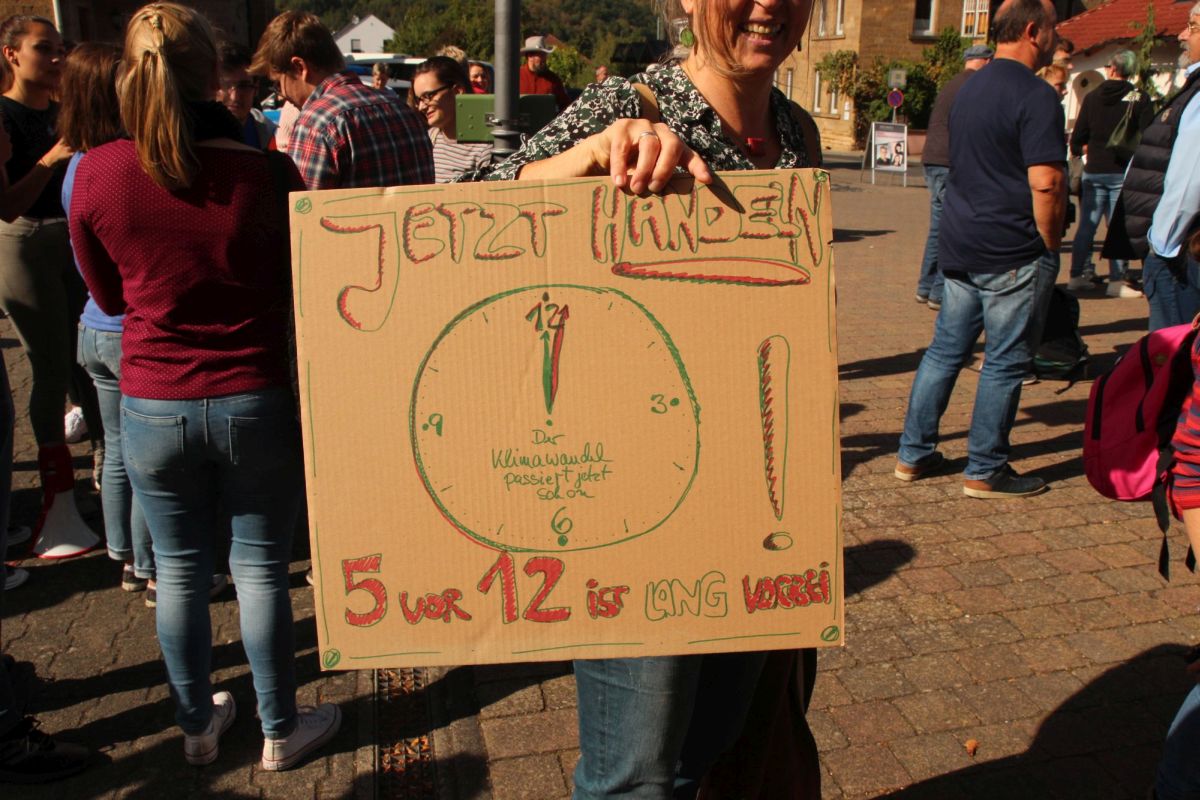 JETZT HANDELN
12
9
3
Der
Klimawandel
passiert jetzt
schon
6
!
5 vor 12 ist LANG VORBEI